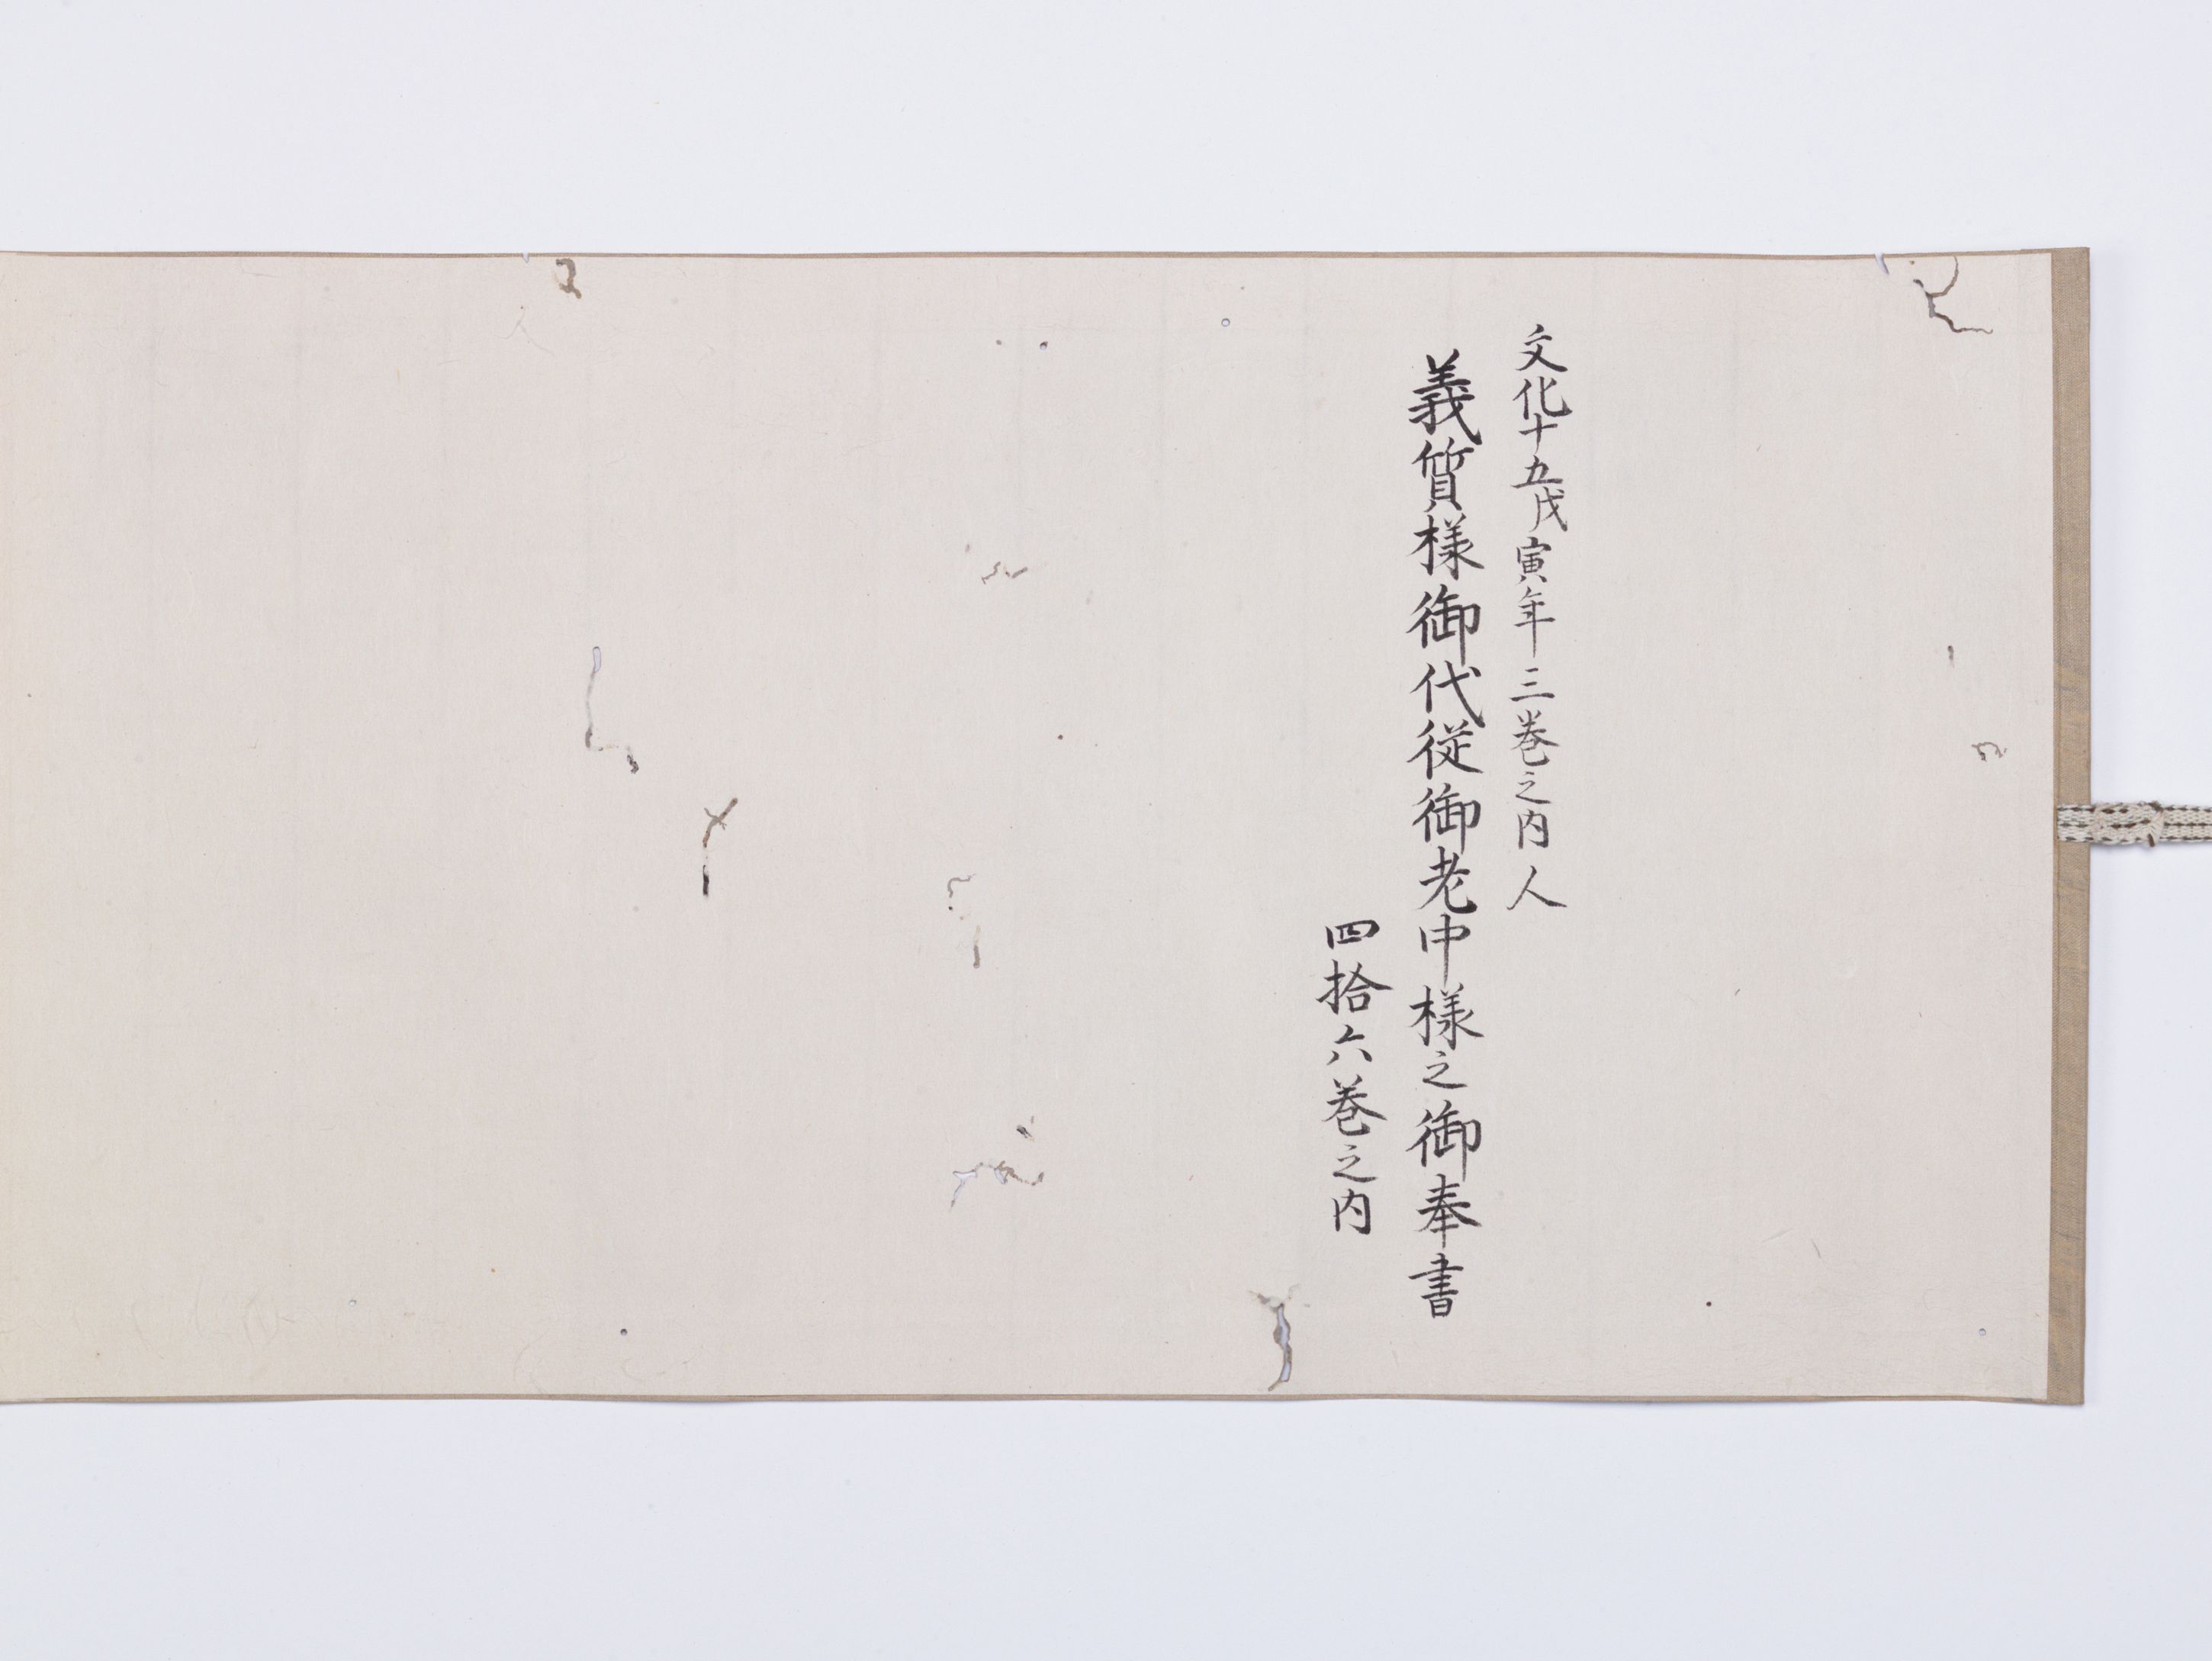 文化十五戊寅年三巻之内人
義質様御代従御老中様之御奉書
四拾六巻之内